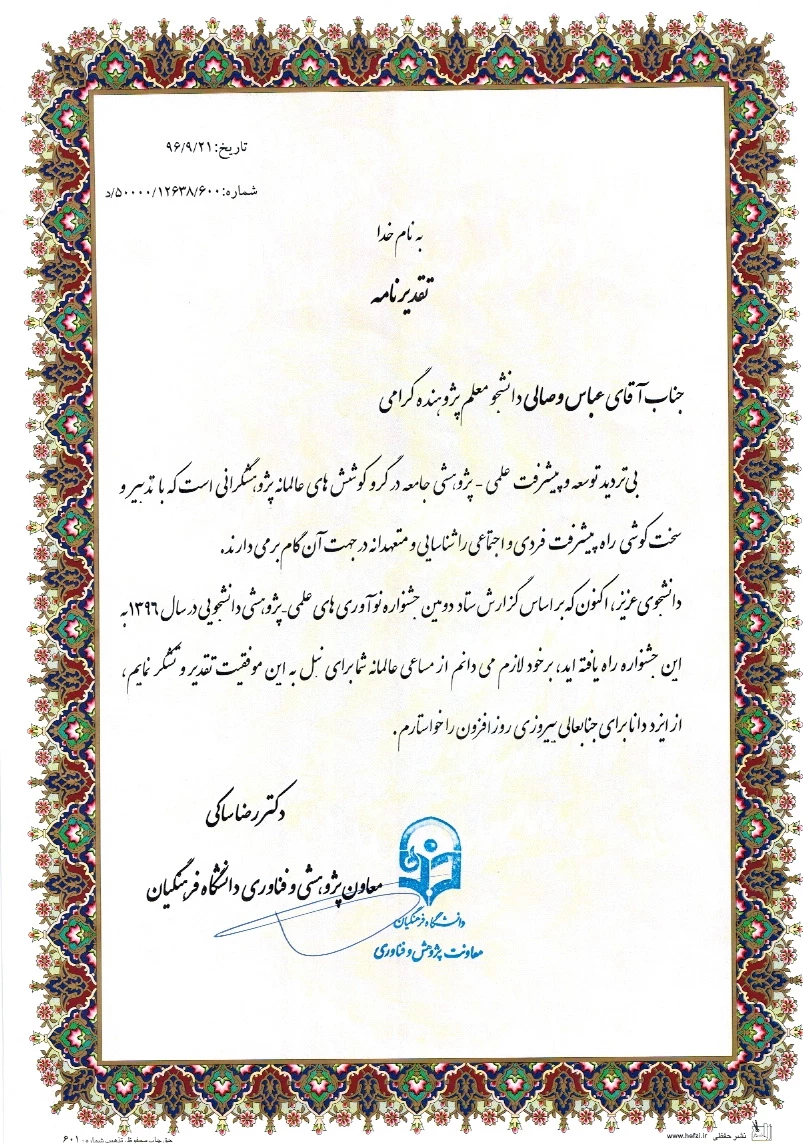 تاریخ: ۹۶/۹/۲۱
شماره: ۵۰۰۰۰/۱۲۶۳۸/۶۰۰/د
به نام خدا
تقدیرنامه
جناب آقای عباس وصالی دانشجو معلم پژوهنده گرامی
بی تردید توسعه و پیشرفت علمی - پژوهشی جامعه در گرو کوشش های عالمانه پژوهشگرانی است که با تدبیر و
سخت کوشی راه پیشرفت فردی و اجتماعی را شناسایی و متعهدانه در جهت آن گام برمی دارند.
دانشجوی عزیز، اکنون که بر اساس گزارش ستاد دومین جشنواره نوآوری های علمی-پژوهشی دانشجویی در سال ۱۳۹۶ به
این جشنواره راه یافته اید، برخود لازم می دانم از مساعی عالمانه شما برای نیل به این موفقیت تقدیر و تشکر نمایم،
از ایزد دانا برای جنابعالی پیروزی روز افزون را خواستارم.
دکتر رضا ساکی
معاون پژوهشی و فناوری دانشگاه فرهنگیان
دانشگاه فرهنگیان
معاونت پژوهش و فناوری
نشر حفظی www.hefzi.ir
حق چاپ محفوظ. تذهیب شماره: ۶۰۱